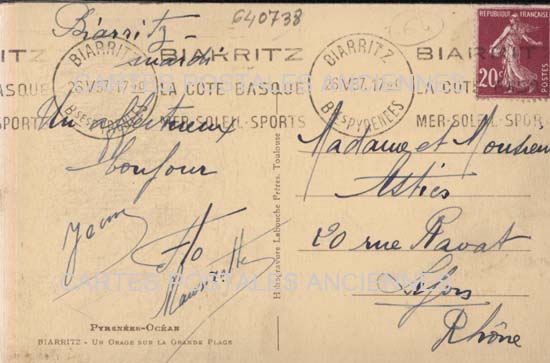 640738
Biarritz
mardi
BIARRITZ
26 V 37. 17
BSES PYRENEES
BIARRITZ
LA COTE BASQUE
MER-SOLEIL-SPORTS
BIARRITZ
26 V 37. 17
BSES PYRENEES
BIARRITZ
LA COTE BASQUE
MER-SOLEIL-SPOR
REPUBLIQUE FRANÇAISE
20c
POSTES
CARTES POSTALES ANCIENNES
Un affectueux
bonjour
Flo
Madame et Monsieur
20 rue
Rhône
Héliogravure Labouche Frères, Toulouse
CARTES POSTALES ANCIENNES
PYRÉNÉES-OCÉAN
BIARRITZ - UN ORAGE SUR LA GRANDE PLAGE